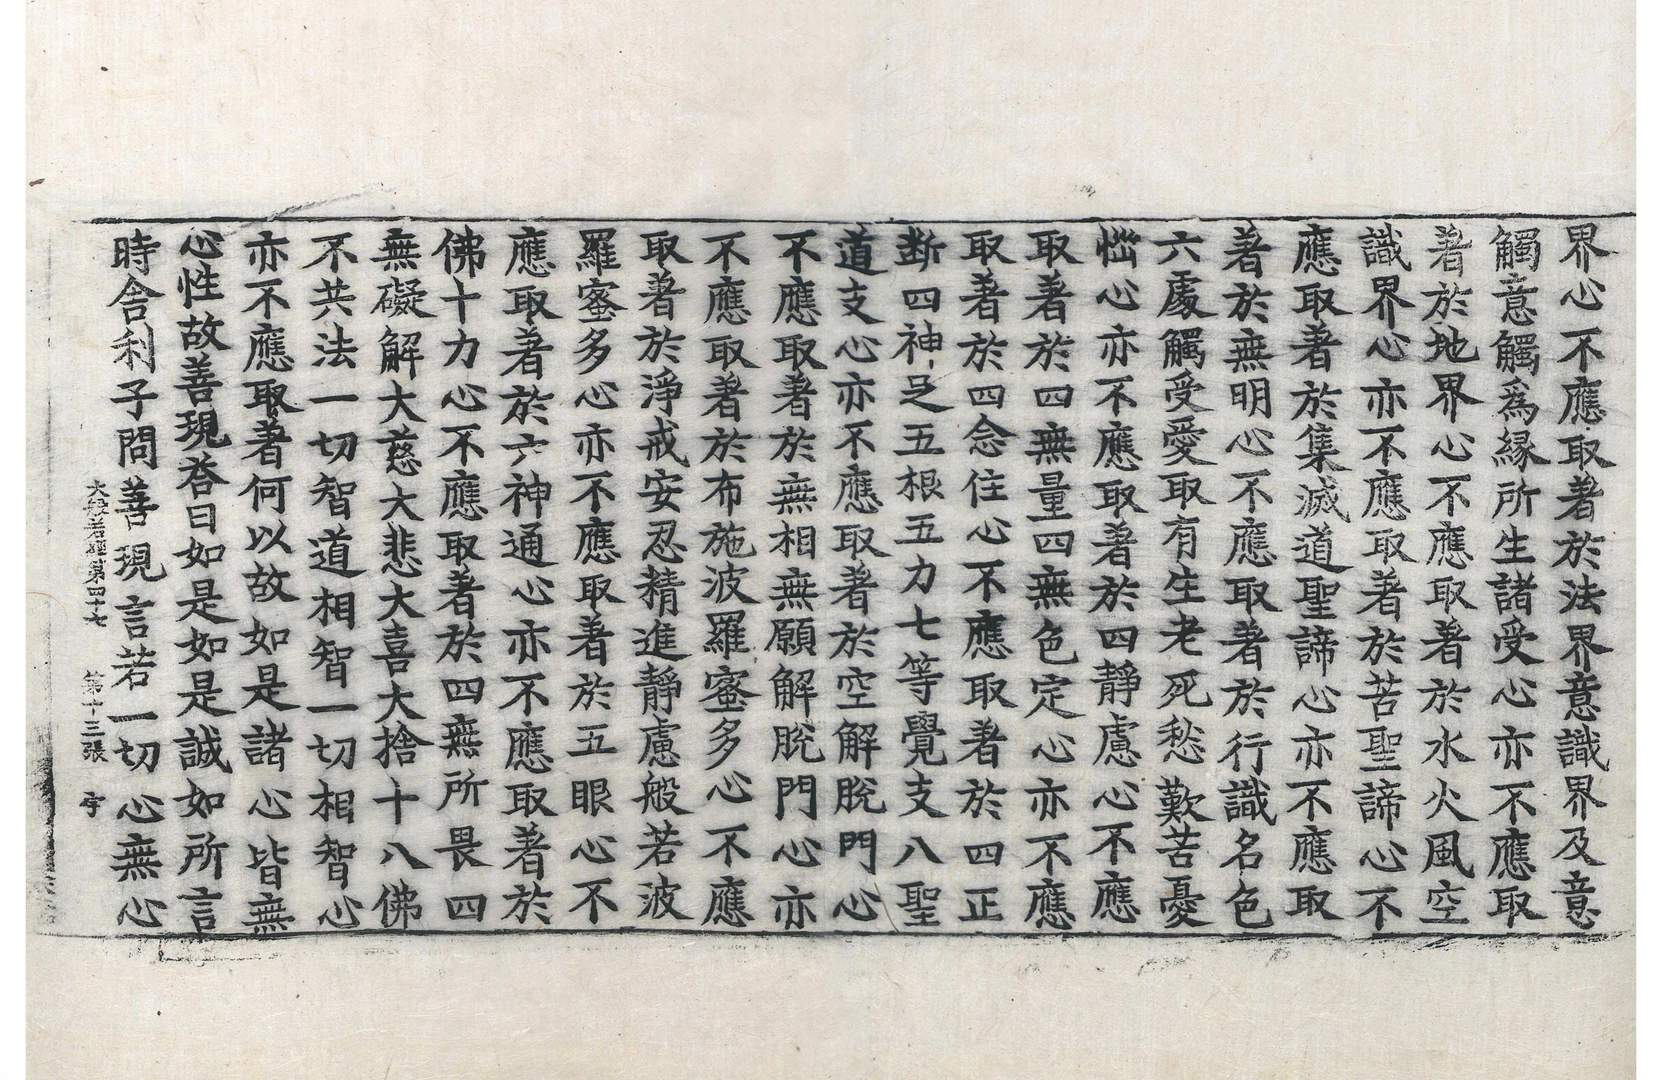 界心不應取著於法界意識界及意
觸意觸爲緣所生諸受心亦不應取
著於地界心不應取著於水火風空
識界心亦不應取著於苦聖諦心不
應取著於集滅道聖諦心亦不應取
著於無明心不應取著於行識名色
六處觸受愛取有生老死愁歎苦憂
惱心亦不應取著於四靜慮心不應
取著於四無量四無色定心亦不應
取著於四念住心不應取著於四正
断四神足五根五力七等覺支八聖
道支心亦不應取著於空解脫門心
不應取著於無相無願解脫門心亦
不應取著於布施波羅蜜多心不應
取著於淨戒安忍精進靜慮般若波
羅蜜多心亦不應取著於五眼心不
應取著於六神通心亦不應取著於
佛十力心不應取著於四無所畏四
無礙解大慈大悲大喜大捨十八佛
不共法一切智道相智一切相智心
亦不應取著何以故如是諸心皆無
心性故善現荅曰如是如是誠如所言
時舍利子問善現言若一切心無心
大般若經第四十七 第十三張 宇